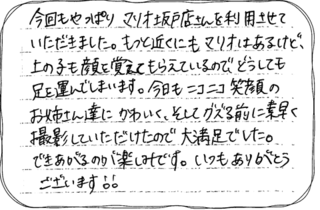 今回もやっぱり マリオ坂戸店さんを利用させて
いただきました。もっと近くにもマリオはあるけど、
上の子も顔を覚えてもらえているのでどうしても
足を運んでしまいます。今日もニコニコ笑顔の
お姉さん達に かわいく、そしてグズる前に素早く
撮影していただけたので 大満足でした。
できあがるのが楽しみです。いつもありがとう
ございます!!